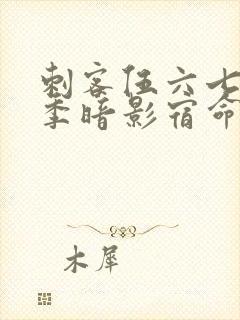 刺客伍六七
季暗影宿命
木犀